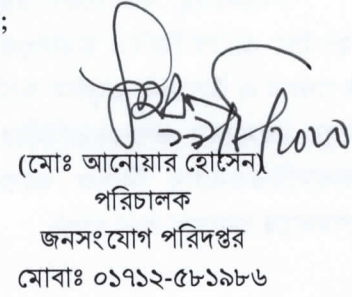 ;
(মোঃ আনোয়ার হোসেন)
পরিচালক
জনসংযোগ পরিদপ্তর
মোবাঃ ০১৭১২-৫৮১৯৮৬